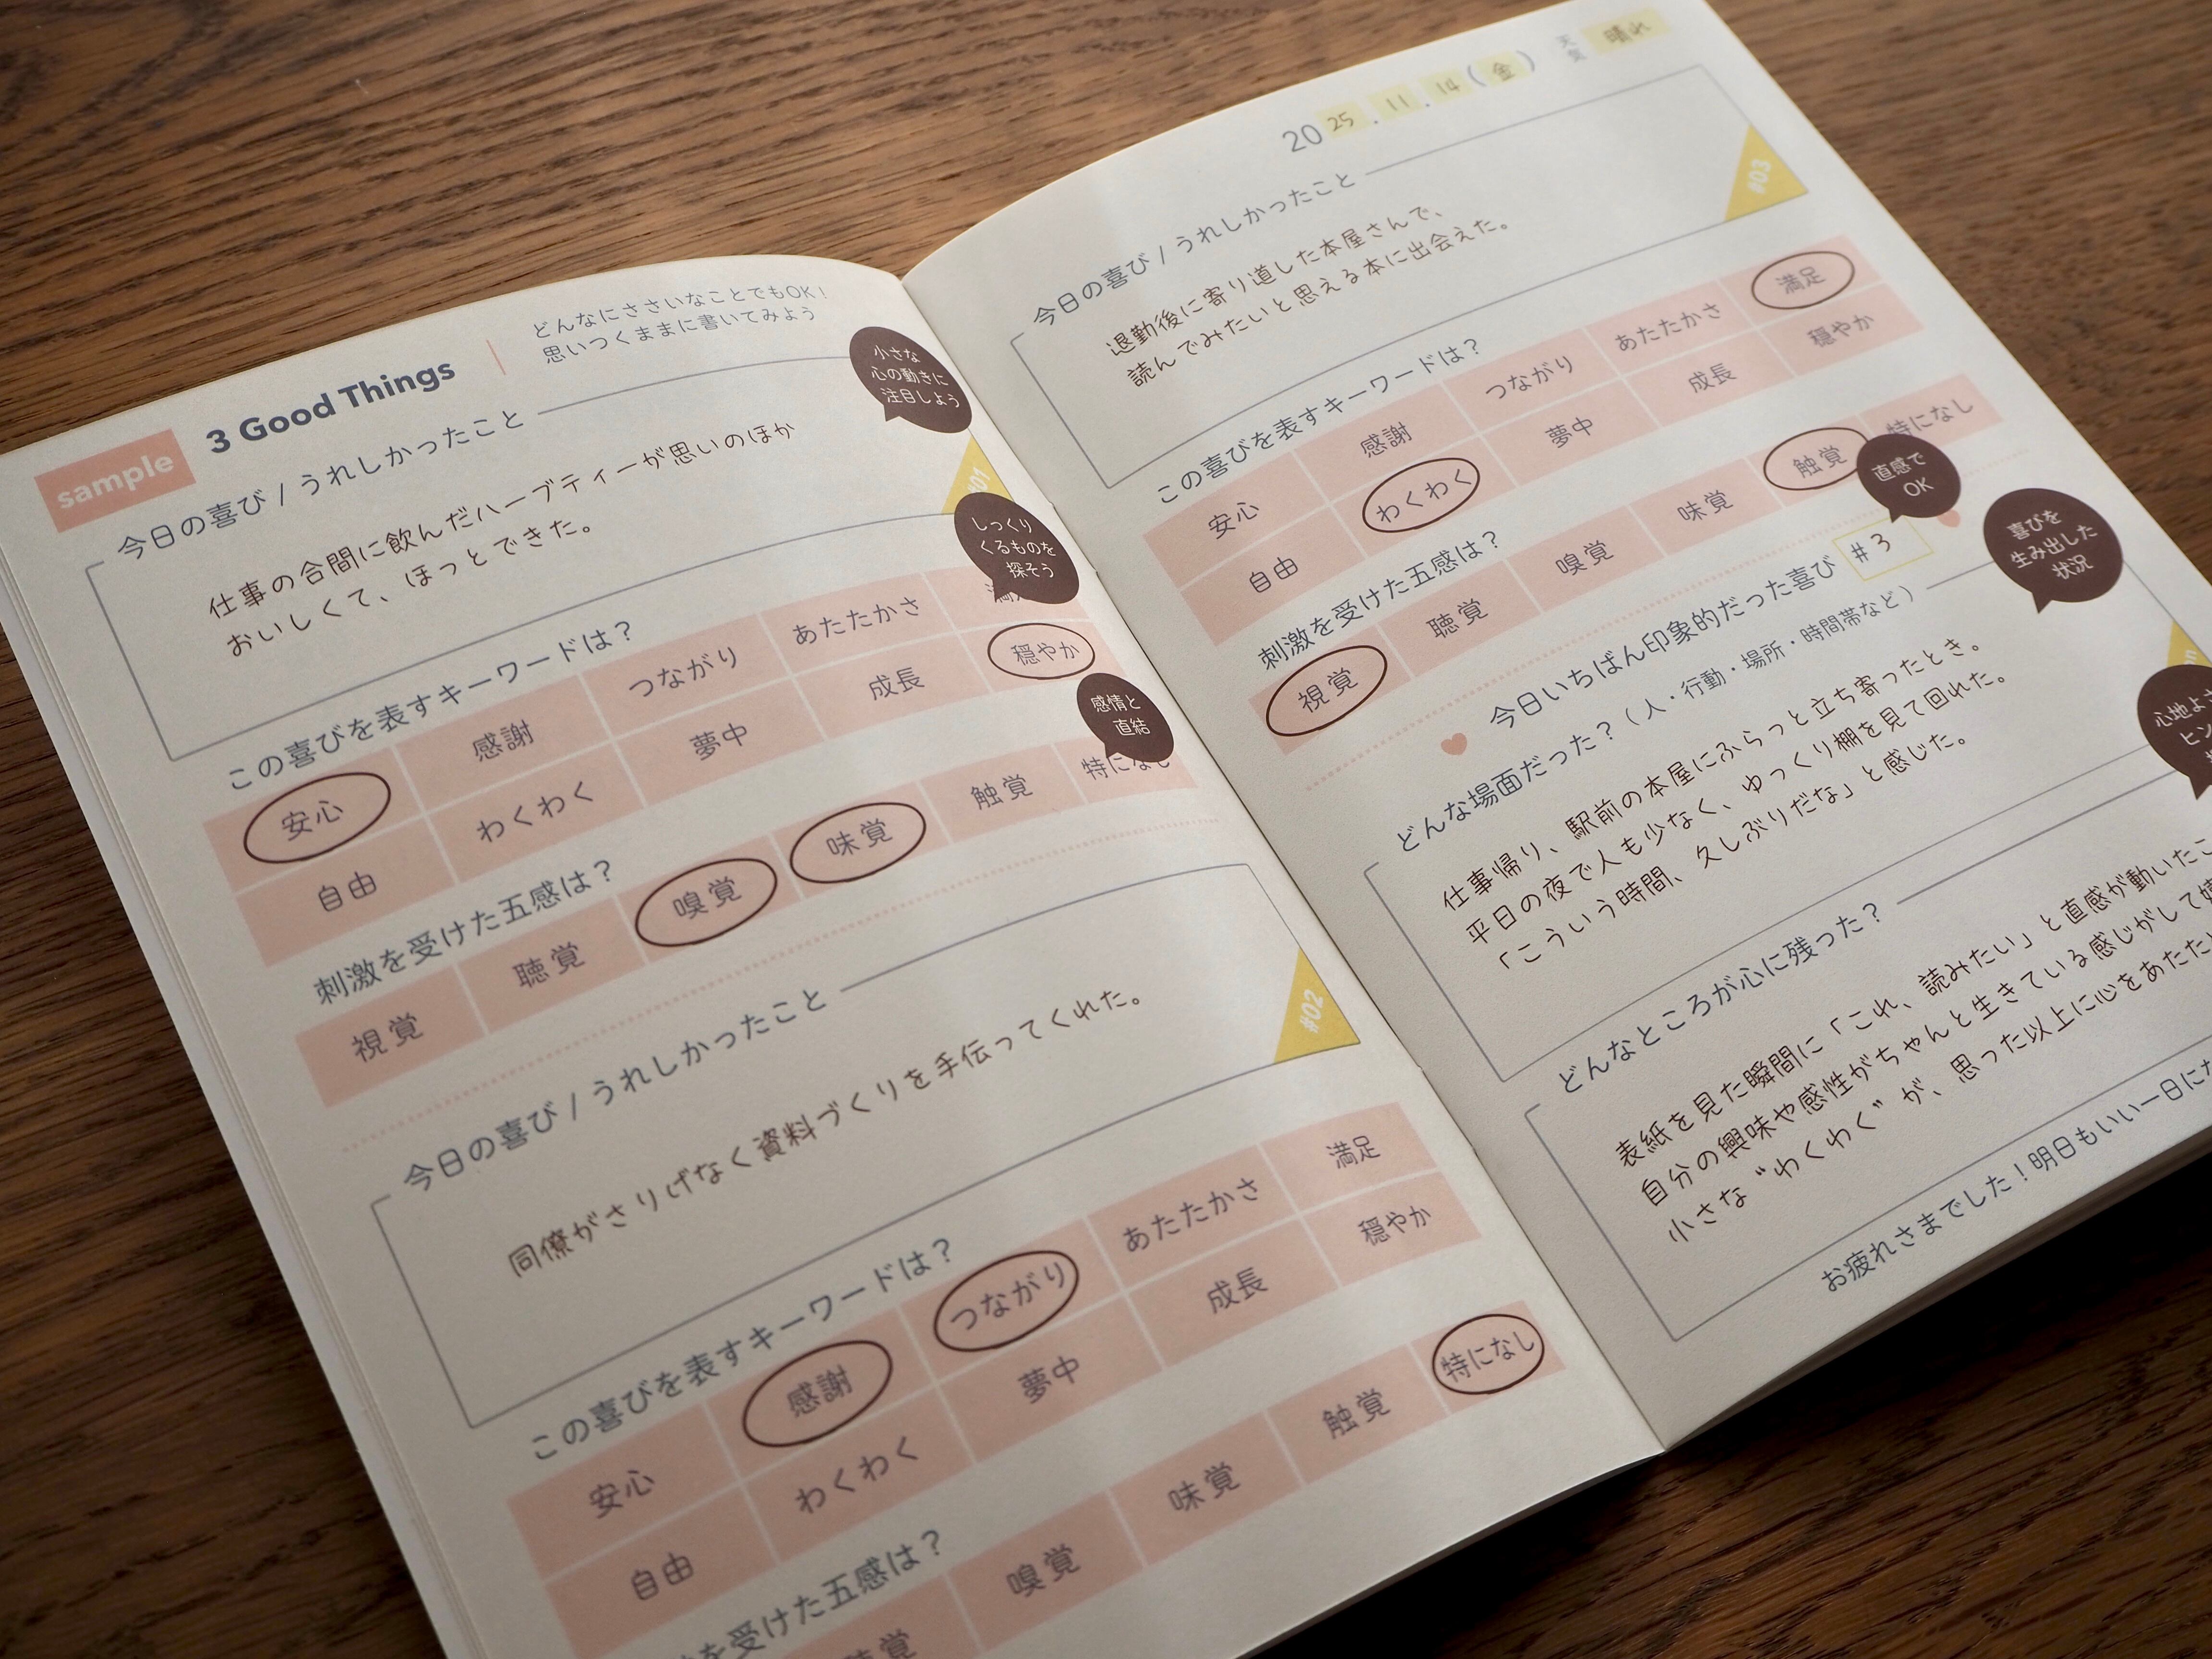 sample
3 Good Things
どんなにささいなことでもOK！
思いつくままに書いてみよう
今日の喜び / うれしかったこと
小さな
心の動きに
注目しよう
仕事の合間に飲んだハーブティーが思いのほか
おいしくて、ほっとできた。
#01
しっくり
くるものを
探そう
この喜びを表すキーワードは？
安心 感謝 つながり あたたかさ
自由 わくわく 夢中 成長 穏やか
感情と
直結
刺激を受けた五感は？
視覚 聴覚 嗅覚 味覚 触覚 特になし
今日の喜び / うれしかったこと
同僚がさりげなく資料づくりを手伝ってくれた。
#02
この喜びを表すキーワードは？
安心 感謝 つながり あたたかさ 満足
自由 わくわく 夢中 成長 穏やか
を受けた五感は？
聴覚 嗅覚 味覚 触覚 特になし
2025.11.14(金) 天気 晴れ
今日の喜び / うれしかったこと
退勤後に寄り道した本屋さんで、
読んでみたいと思える本に出会えた。
#03
この喜びを表すキーワードは？
安心 感謝 つながり あたたかさ 満足
自由 わくわく 夢中 成長 穏やか
刺激を受けた五感は？
視覚 聴覚 嗅覚 味覚 触覚 特になし
直感で
OK
今日いちばん印象的だった喜び #3
喜びを
生み出した
状況
どんな場面だった？（人・行動・場所・時間帯など）
仕事帰り、駅前の本屋にふらっと立ち寄ったとき。
平日の夜で人も少なく、ゆっくり棚を見て回れた。
「こういう時間、久しぶりだな」と感じた。
心地よ
ヒン
どんなところが心に残った？
表紙を見た瞬間に「これ、読みたい」と直感が動いたこ
自分の興味や感性がちゃんと生きている感じがして嬉
小さな“わくわく”が、思った以上に心をあたた
お疲れさまでした！明日もいい一日に